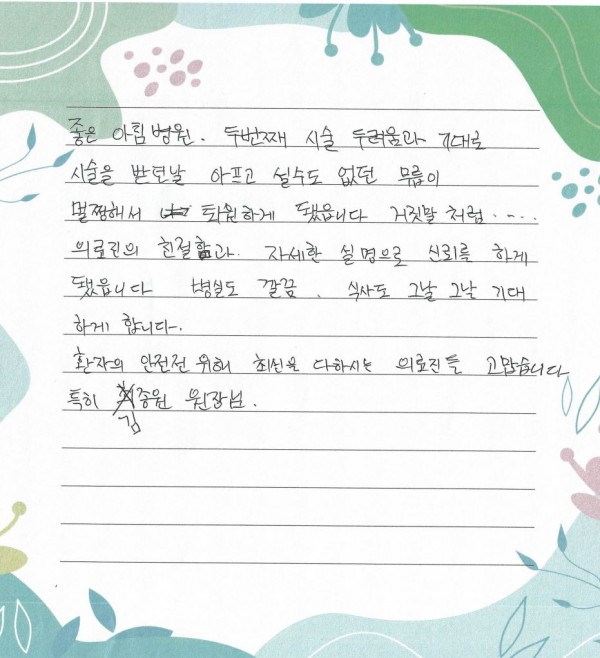 좋은 아침 병원. 두번째 시술 두려움과 기대로
시술을 받던날 아프고 설수도 없던 무릎이
멀쩡해서 퇴원하게 됐읍니다 거짓말 처럼....
의료진의 친절함과. 자세한 설명으로 신뢰를 하게
됐읍니다 병실도 깔끔. 식사도 그날 그날 기대
하게 합니다.
환자의 안전전 위해 최선을 다하시는 의료진들 고맙습니다
특히 김종원 원장님.